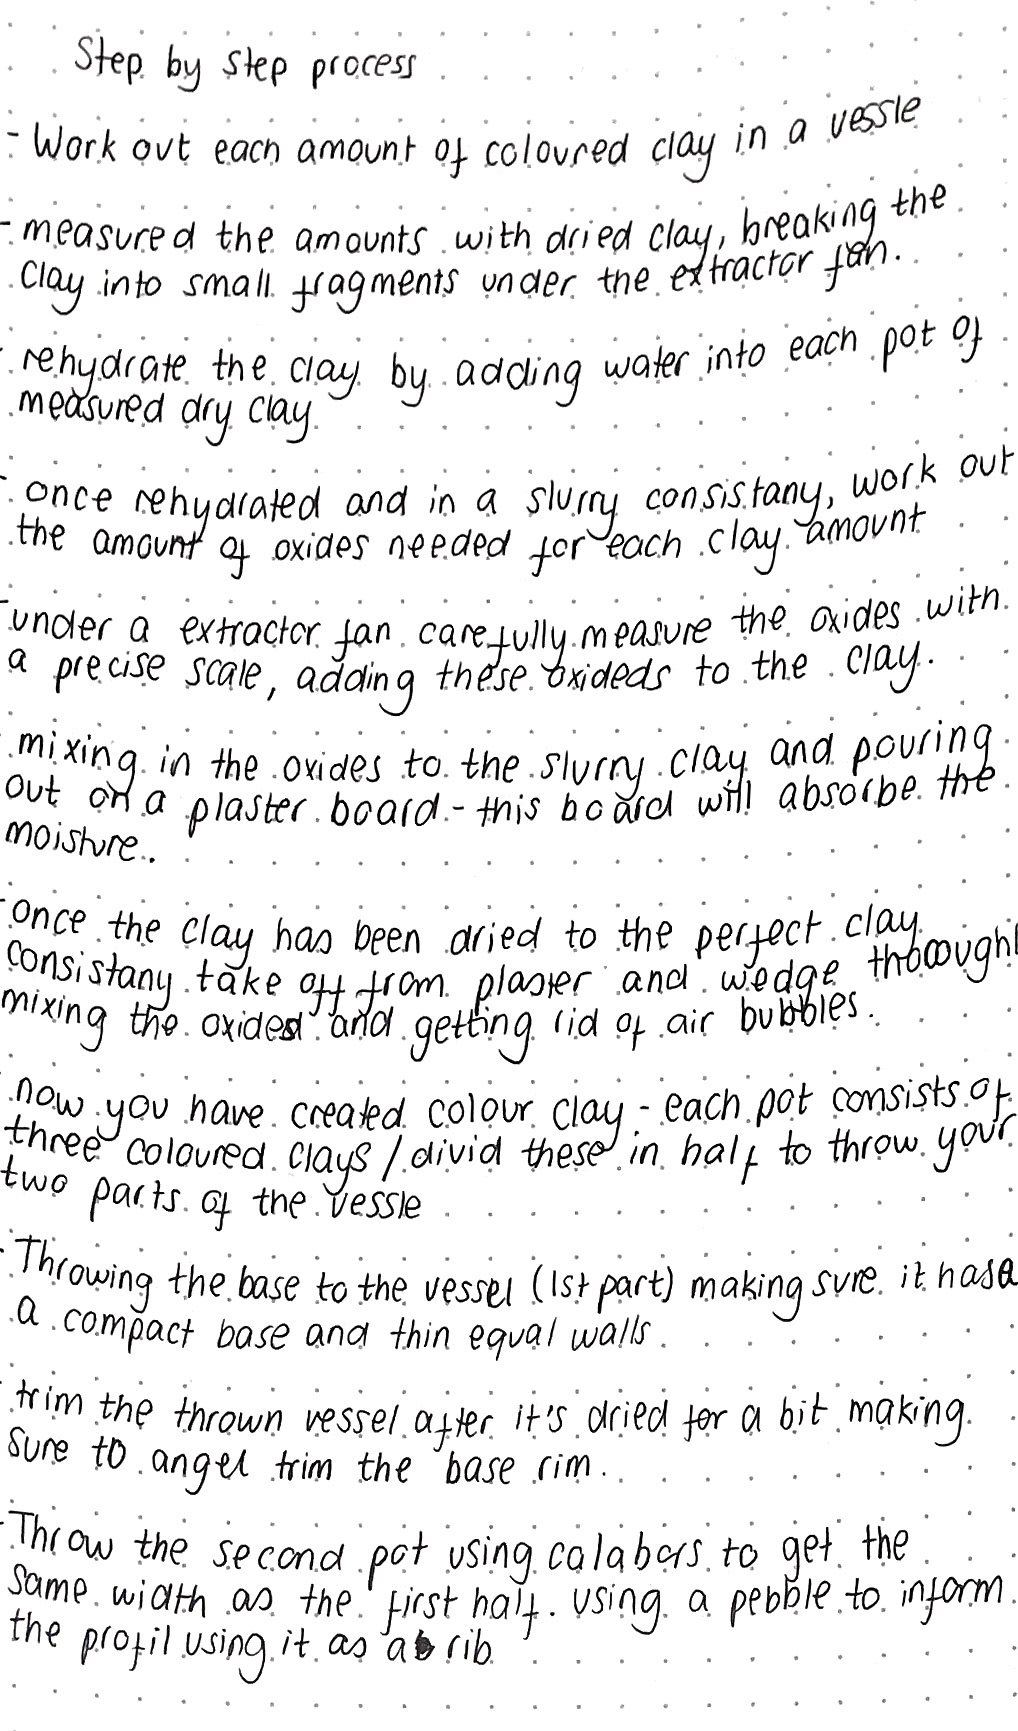 Step by step process
- Work out each amount of coloured clay in a vessle
- measured the amounts with dried clay, breaking the
clay into small fragments under the extractor fan.
- rehydrate the clay by adding water into each pot of
measured dry clay
- once rehydrated and in a slurry consistany, work out
the amount of oxides needed for each clay amount
- under a extractor fan carefully measure the oxides with
a precise scale, adding these oxideds to the clay.
mixing in the oxides to the slurry clay and pouring
out on a plaster board - this board will absorbe the
moisture.
- once the clay has been dried to the perfect clay
consistany take off from plaster and wedge thoroughl
mixing the oxides and getting rid of air bubbles.
now you have created colour clay - each pot consists of
three coloured clays / divid these in half to throw your
two parts of the vessle
- Throwing the base to the vessel (1st part) making sure it has a
a compact base and thin equal walls.
trim the thrown vessel after it's dried for a bit making
sure to angel trim the base rim.
- Throw the second pot using calabers to get the
same width as the first half. using a pebble to inform
the profil using it as a rib